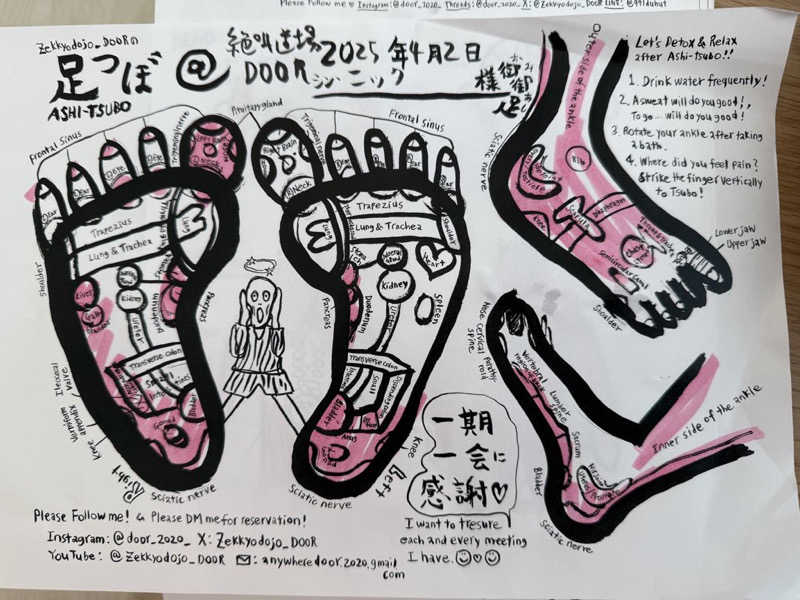 Please Follow me ♡ Instagram: @door_2020_ Threads: @door_2020_ X: @Zekkyodojo_DOOR LINE: @991duhut
Zekkyodojo_DOORの
足つぼ
ASHI-TSUBO
@
絶叫道場
DOOR
2025年4月2日
シン・ニック
様
御御足
Let's Detox & Relax
after Ashi-Tsubo!!
1. Drink water frequently!
2. A sweat will do you good!,
To go... will do you good!
3. Rotate your ankle after taking
a bath.
4. Where did you feel pain?
Strike the finger vertically
to Tsubo!
Frontal Sinus
Trigeminal nerve
Pituitary gland
Neck
Ear
Ear
Eye
Eye
Trapezius
Lung & Trachea
Shoulder
Liver
Kidney
Ureter
Duodenum
Pancreas
Transverse colon
Small
Intestines
Ileocecal
valve
Vermiform
appendix
Knee
Right
Sciatic nerve
Frontal Sinus
Neck
Trapezius
Lung & Trachea
Shoulder
Heart
Kidney
Spleen
Pancreas
Duodenum
Ureter
Transverse colon
Small
Bladder
Anus
Knee
Left
Sciatic nerve
Outer side of the ankle
Sciatic nerve
Rib
Knee
Diaphragm
Semicircular canal
Shoulder
Lower jaw
Upper jaw
Nose
Cervical
spine
Lumbar
spine
Sacrum
Bladder
Inner side of the ankle
Sciatic nerve
一期
一会に
感謝♡
I want to tresure
each and every meeting
I have. ☺♡☺
Please Follow me! & Please DM me for reservation!
Instagram: @door_2020_ X: Zekkyodojo_DOOR
YouTube: @Zekkyodojo_DOOR ✉: anywheredoor.2020.gmail
com